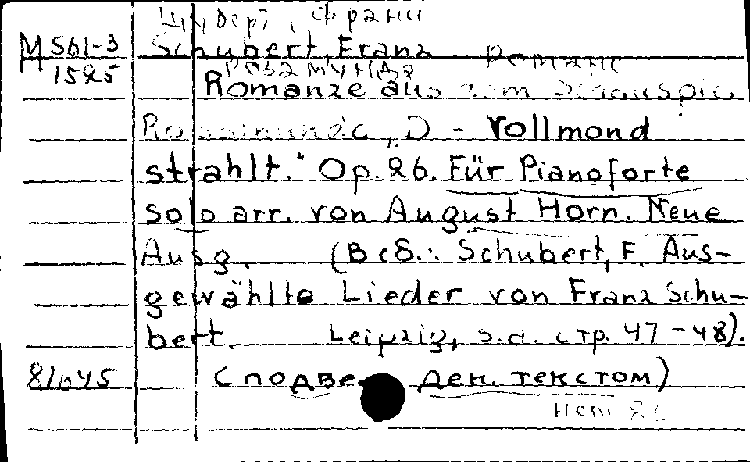 Шуберт, Франц
М 561-3 Schubert, Franz Романс
1525 Розамунда
Romanze aus dem Schauspiel
Rosamunde, „D - Vollmond
strahlt." Op. 26. Für Pianoforte
solo arr. von August Horn. Neue
Ausg. (В сб.: Schubert, F. Aus-
gewählte Lieder von Franz Schu-
bert. Leipzig, s.a. стр. 47-48).
81045 (подве ден. текстом)